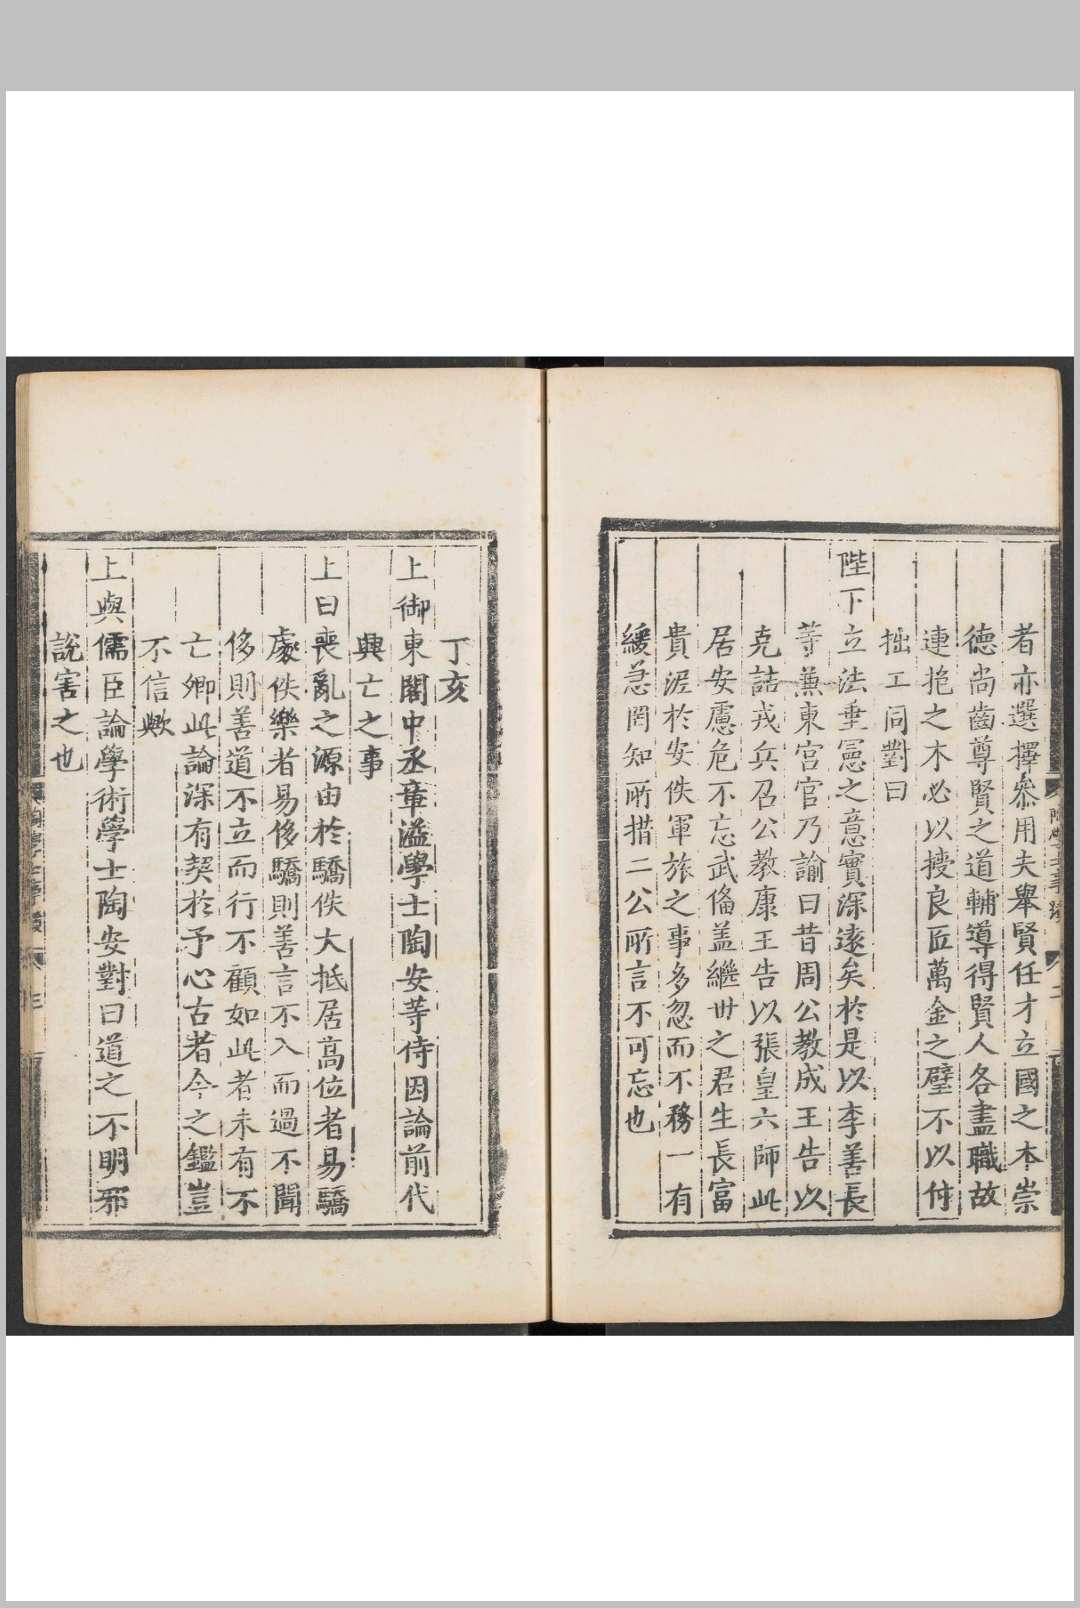 者亦選擇叅用夫舉賢任才立國之本崇
德尚齒尊賢之道輔導得賢人各盡職故
連抱之木必以授良匠萬金之璧不以付
拙工同對曰
陛下立法垂憲之意實深遠矣於是以李善長
等兼東宮官乃諭曰昔周公教成王告以
克詰戎兵召公教康王告以張皇六師此
居安慮危不忘武俻盖繼世之君生長富
貴涯於安佚軍旅之事多忽而不務一有
緩急罔知所措二公所言不可忘也
丁亥
上御東閣中丞章溢學士陶安等侍因論前代
興亡之事
上曰喪亂之源由於驕佚大抵居高位者易驕
處佚樂者易侈驕則善言不入而過不聞
侈則善道不立而行不顧如此者未有不
亡卿此論深有契於予心古者今之鑑豈
不信歟
上與儒臣論學術學士陶安對曰道之不明邪
說害之也